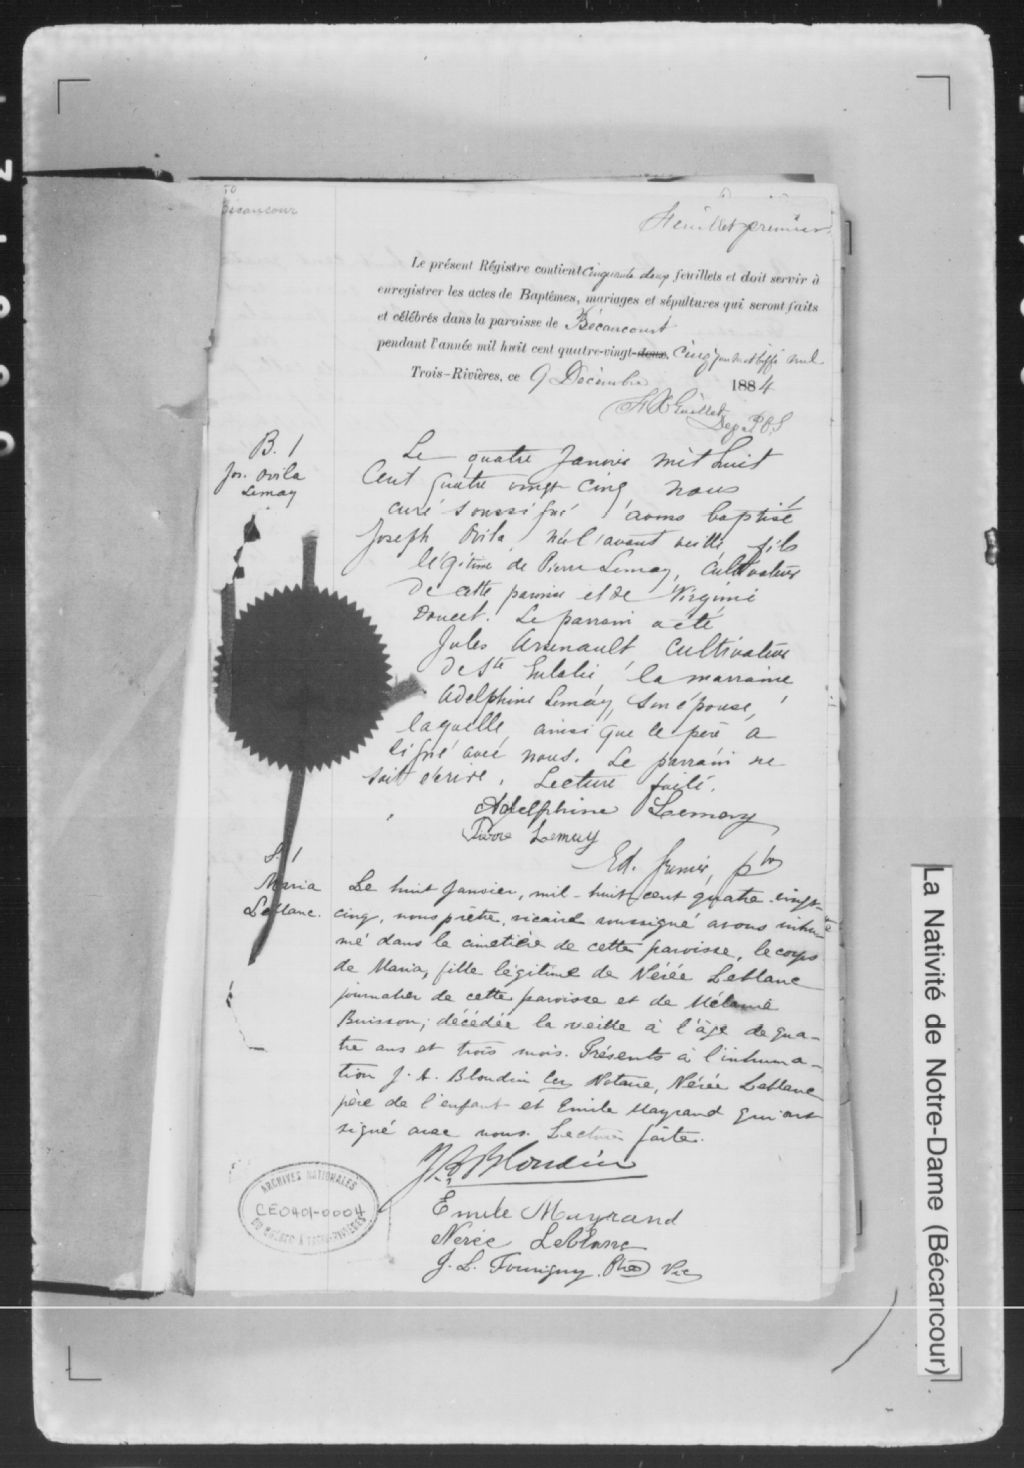 50
Bécancour
Feuillet premier
Le présent Régistre contient cinquante deux feuillets et doit servir à
enregistrer les actes de Baptêmes, mariages et sépultures qui seront faits
et célébrés dans la paroisse de Bécancourt
pendant l'année mil huit cent quatre-vingt-deux. cinq
Trois-Rivières, ce 9 Décembre 1884
F X Guillet
Dep. P C S
B. 1
Jos. Ovila
Lemay
Le quatre Janvier mil huit
cent quatre vingt cinq nous
curé soussigné avons baptisé
Joseph Ovila, né l'avant veille, fils
légitime de Pierre Lemay, cultivateur
de cette paroisse et de Virginie
Doucet. Le parrain a été
Jules Arsenault cultivateur
de Ste Eulalie, la marraine
Adelphine Lemay, son épouse,
laquelle, ainsi que le père a
signé avec nous. Le parrain ne
sait écrire. Lecture faite.
Adelphine Lemay
Pierre Lemay
Ed. ptre
S. 1
Maria
Leblanc.
Le huit Janvier, mil-huit cent quatre-vingt-
cinq, nous prêtre, vicaire soussigné avons inhu-
mé dans le cimetière de cette paroisse, le corps
de Maria, fille légitime de Nérée Leblanc
journalier de cette paroisse et de Mélanie
Buisson; décédée la veille à l'âge de qua-
tre ans et trois mois. Présents à l'inhuma-
tion J. A. Blondin Notaire, Nérée Leblanc
père de l'enfant et Emile Mayrand qui ont
signé avec nous. Lecture faite.
J. A. Blondin
Emile Mayrand
Nérée Leblanc
J. L. Fourigny. Ptre Vic
ARCHIVES NATIONALES
CE0401-0004
DU QUÉBEC À TROIS-RIVIÈRES
La Nativité de Notre-Dame (Bécancour)